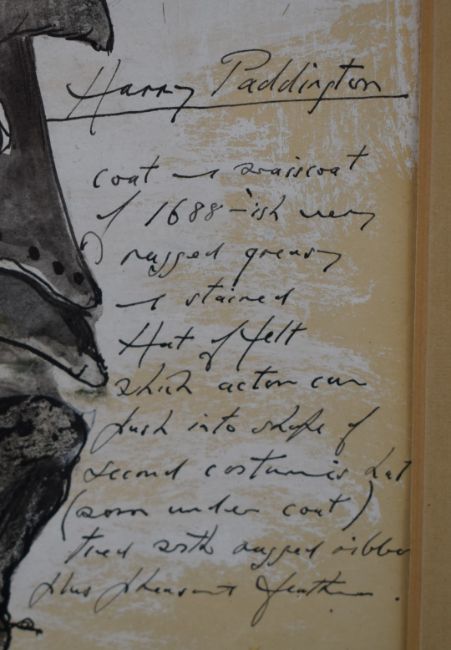 Harry Paddington
coat & waiscoat
of 1688-ish very
ragged greasy
& stained
Hat of felt
which actor can
push into shape of
second costume's hat
(worn under coat)
tied with ragged ribbon
plus pheasant feather.